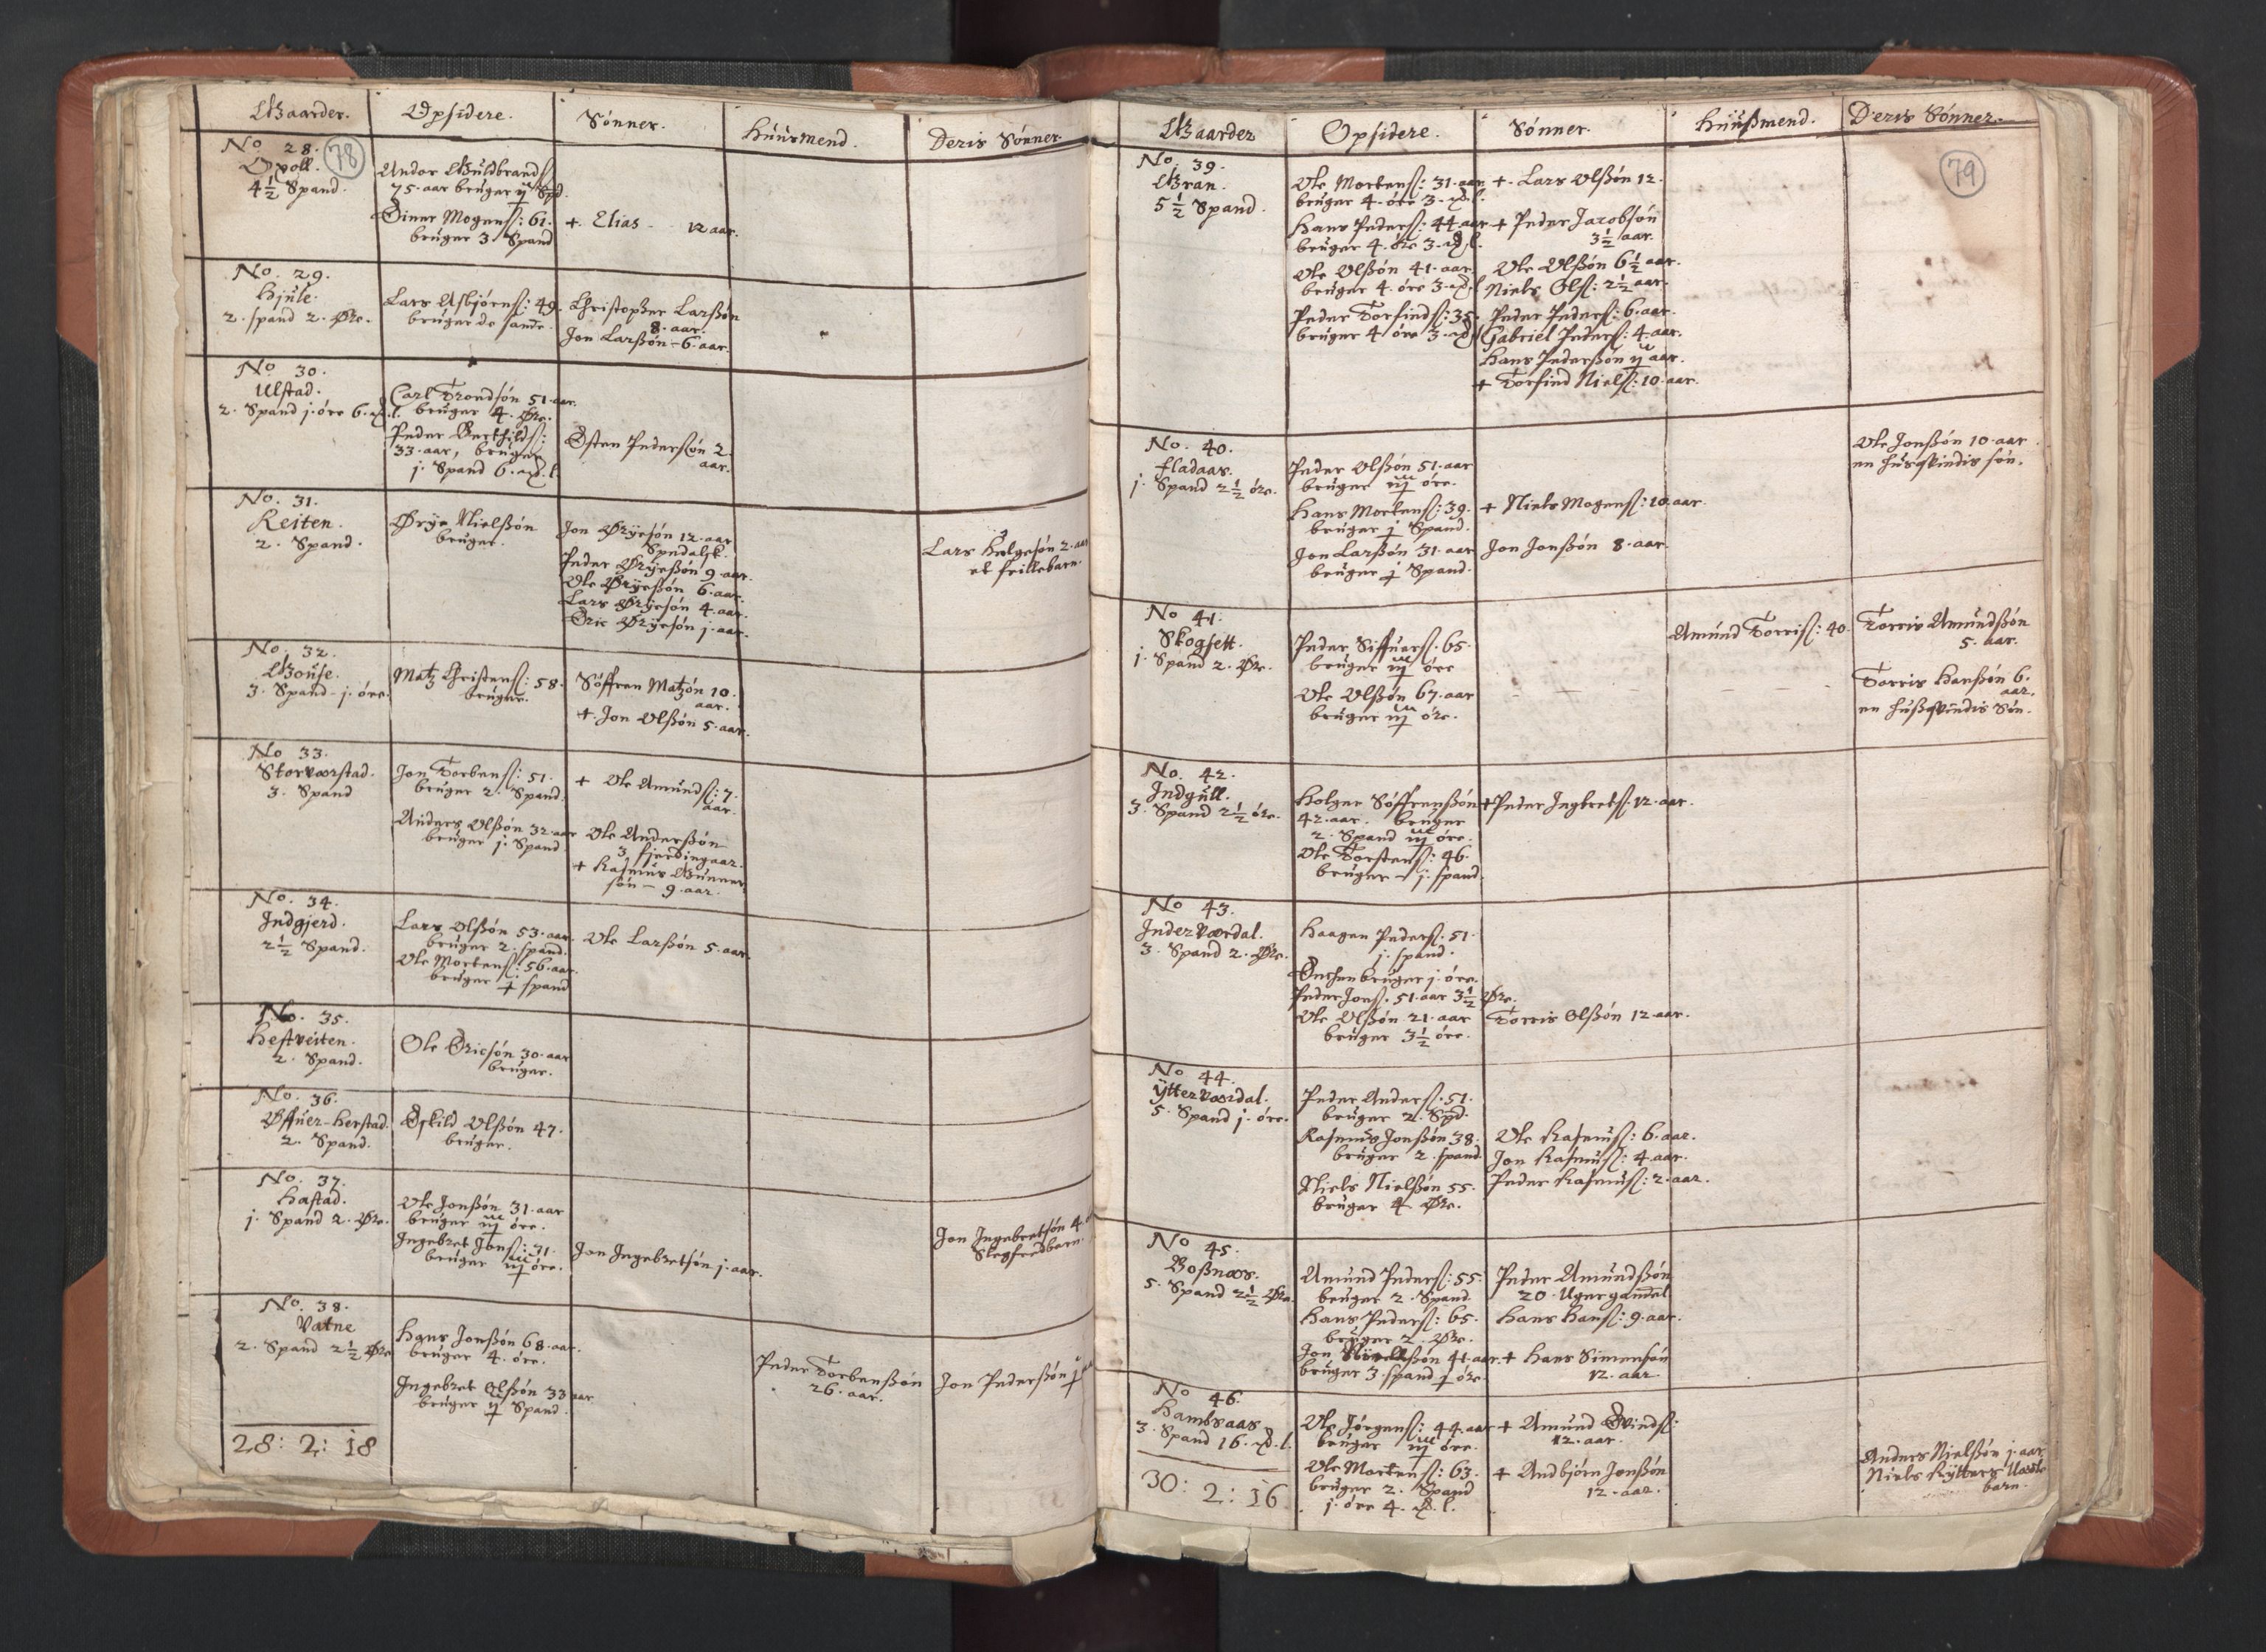 Gaarder. Opsidere. Sønner. Huusmend. Deris Sønner.
78
No. 28.
Opoll.
4½ Spand.
Andor Guldbrands:
75. aar bruger ij Spd.
Einer Mogens: 61.
bruger 3. Spand
+. Elias - 12 aar.
No. 29.
Hjule.
2. spand 2. Øre.
Lars Asbjørns: 49.
bruger de sande.
Christopher Larsøn
8. aar.
Jon Larsøn - 6. aar.
No. 30.
Ulstad.
2. Spand j. øre 6. ℔. l.
Carl Trondsøn 51. aar.
bruger 4. Øre.
Peder Berthilds:
33. aar, bruger
j. Spand 6. ℔. l.
Østen Pedersøn 2.
aar.
No. 31.
Reiten.
2. Spand.
Ørje Nielsøn
bruger.
Jon Ørjesøn 12. aar
Spedalsk.
Peder Ørjesøn 9. aar.
Ole Ørjesøn 6. aar.
Lars Ørjesøn 4. aar.
Eric Ørjesøn j. aar.
Lars Helgesøn 2. aar
et frillebarn.
No. 32.
Gouse.
3. Spand - j. øre.
Matz Christens: 58.
bruger.
Søffren Matzøn 10.
aar.
+. Jon Olsøn 5. aar.
No. 33.
Storværstad.
3. Spand
Jon Torbens: 51.
bruger 2. Spand.
Anders Olsøn 32. aar
bruger j. Spand
+ Ole Amunds: 7.
aar.
Ole Andersøn
3 fjerdingaar.
+ Rasmus Gunner
søn - 9. aar.
No. 34.
Indgjerd.
2½ Spand.
Lars Olsøn 53. aar.
bruger 2. spand.
Ole Mortens: 56. aar.
bruger ½ spand
Ole Larsøn 5. aar
No. 35.
Hestreiten.
2. Spand.
Ole Ericsøn 30. aar
bruger.
No. 36.
Øffuer-Herstad.
2. Spand.
Eskild Olsøn 47.
bruger.
No. 37.
Hastad.
j. Spand 2. Øre.
Ole Jonsøn 31. aar
bruger iij øre.
Ingebret Jons: 31.
bruger iij øre.
Jon Ingebretsøn j. aar.
Jon Ingebretsøn 4.
Slegfredbarn.
No. 38.
Vatne
2. Spand 2½ Øre
Hans Jonsøn 68. aar.
bruger 4. øre.
Ingebret Olsøn 33 aar
bruger ij Spand.
Peder Torbensøn
26. aar.
Jon Pedersøn
28: 2: 18
Gaarder Opsidere. Sønner. Huusmend. Deris Sønner.
79
No. 39.
Gran.
5½ Spand.
Ole Mortens: 31. aar
bruger 4. øre 3. ℔. l.
Hans Peders: 44 aar
bruger 4. øre 3. ℔. l.
Ole Olsøn 41. aar.
bruger 4. øre 3. ℔. l
Peder Torfinds: 35.
bruger 4 øre 3. ℔. l
+. Lars Olsøn 12.
+ Peder Jacobsøn
3½ aar.
Ole Olsøn 6½ aar.
Niels Ols: 2½ aar.
Peder Peders: 6. aar.
Gabriel Peders: 4. aar.
Hans Pedersøn ij aar.
+ Torfind Niels: 10. aar.
No. 40.
Fladaas.
j. Spand 2½ øre.
Peder Olsøn 51. aar
bruger iij øre.
Hans Mortens: 39.
bruger j Spand.
Jon Larsøn 31. aar
bruger ½ Spand.
+ Niels Mogens: 10. aar.
Jon Jonsøn 8. aar.
Ole Jonsøn 10. aar
en husqvindis søn.
No 41.
Skogsett.
j. Spand 2. Øre.
Peder Siffuers: 65.
bruger iij øre
Ole Olsøn 67. aar
bruger iij øre.
Amund Torris: 40.
Torris Amundsøn
5. aar.
Torris Hansøn 6.
aar.
en husqvindis Søn.
No. 42.
Indgull.
3. Spand 2½ øre.
Holger Søffrensøn
42. aar. bruger
2. Spand iij øre.
Ole Torstens: 46.
bruger - j. spand.
+ Peder Ingbrets: 12. aar.
No 43.
Inderværdal.
3. Spand 2. Øre.
Haagen Peders: 51.
j. spand.
Enchen bruger j. øre.
Peder Jons: 51. aar 3½ Øre.
Ole Olsøn 21. aar
bruger 3½ øre.
Torris Olsøn 12 aar.
No 44.
Ytterværdal.
5. Spand j. øre.
Peder Anders: 51.
bruger 2. Spd.
Rasmus Jonsøn 38.
bruger 2. spand.
Niels Nielsøn 55.
bruger 4 Øre.
Ole Rasmus: 6. aar.
Jon Rasmus: 4. aar.
Peder Rasmus: 2. aar.
No 45.
Bosnæs.
5. Spand 2½ Øre
Amund Peders: 55.
bruger 2. Spand
Hans Peders: 65.
bruger 2. Øre.
Jon 41. aar.
bruger 3. spand ½ øre
Peder Amundsøn
20. Uger gamel
Hans Hans: 9. aar.
+ Hans Simensøn
12. aar.
No 46.
Hambsaas
3. Spand 16. ℔. l.
Ole Jørgens: 44. aar
bruger iij øre.
Ole Mortens: 63.
bruger 2. Spand
j. øre 4. ℔. l.
+ Amund Evinds:
12. aar.
+ Andbjørn Jonsøn
12. aar.
Anders Nielsøn j. aar
Niels Rytters
barn.
30: 2: 16